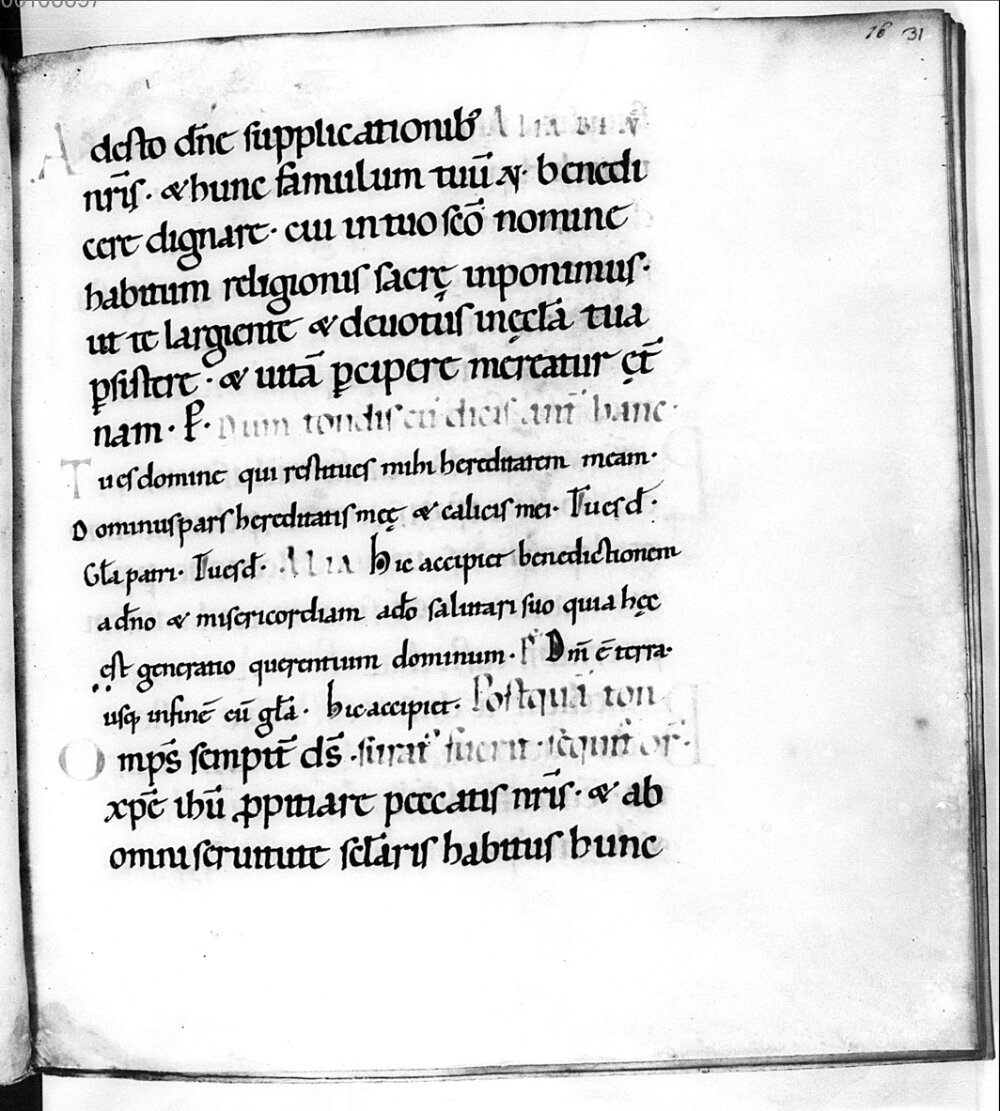 16 31
Adesto dn̄e supplicationib; Alia
nr̄is. & hunc famulum tuū N. benedi
cere dignare. cui in tuo sc̄o nomine
habitum religionis sacrę inponimus.
ut te largiente & deuotus in ęccl̄a tua
p̱sistere. & uitā p̱cipere mereatur ęt̄
nam. P̱. Dum tondis eū dicis ant̄ hanc.
Tu es domine qui restitues mihi hereditatem meam.
Dominus pars hereditatis meę & calicis mei. Tu es d̄.
Gl̄a patri. Tu es d̄. Alia Hic accipiet benedictionem
a dn̄o & misericordiam a dō salutari suo quia hęc
ęst generatio querentium dominum. P̄ Dn̄i ē terra.
usq; in finē cū gl̄a. Hic accipiet. Postquā ton
Omps̄ sempit̄ ds̄. surat̄ fuerit. sequit̄ or̄.
xp̄e ihū ꝓpitiare peccatis nr̄is. & ab
omni seruitute scl̄aris habitus hunc